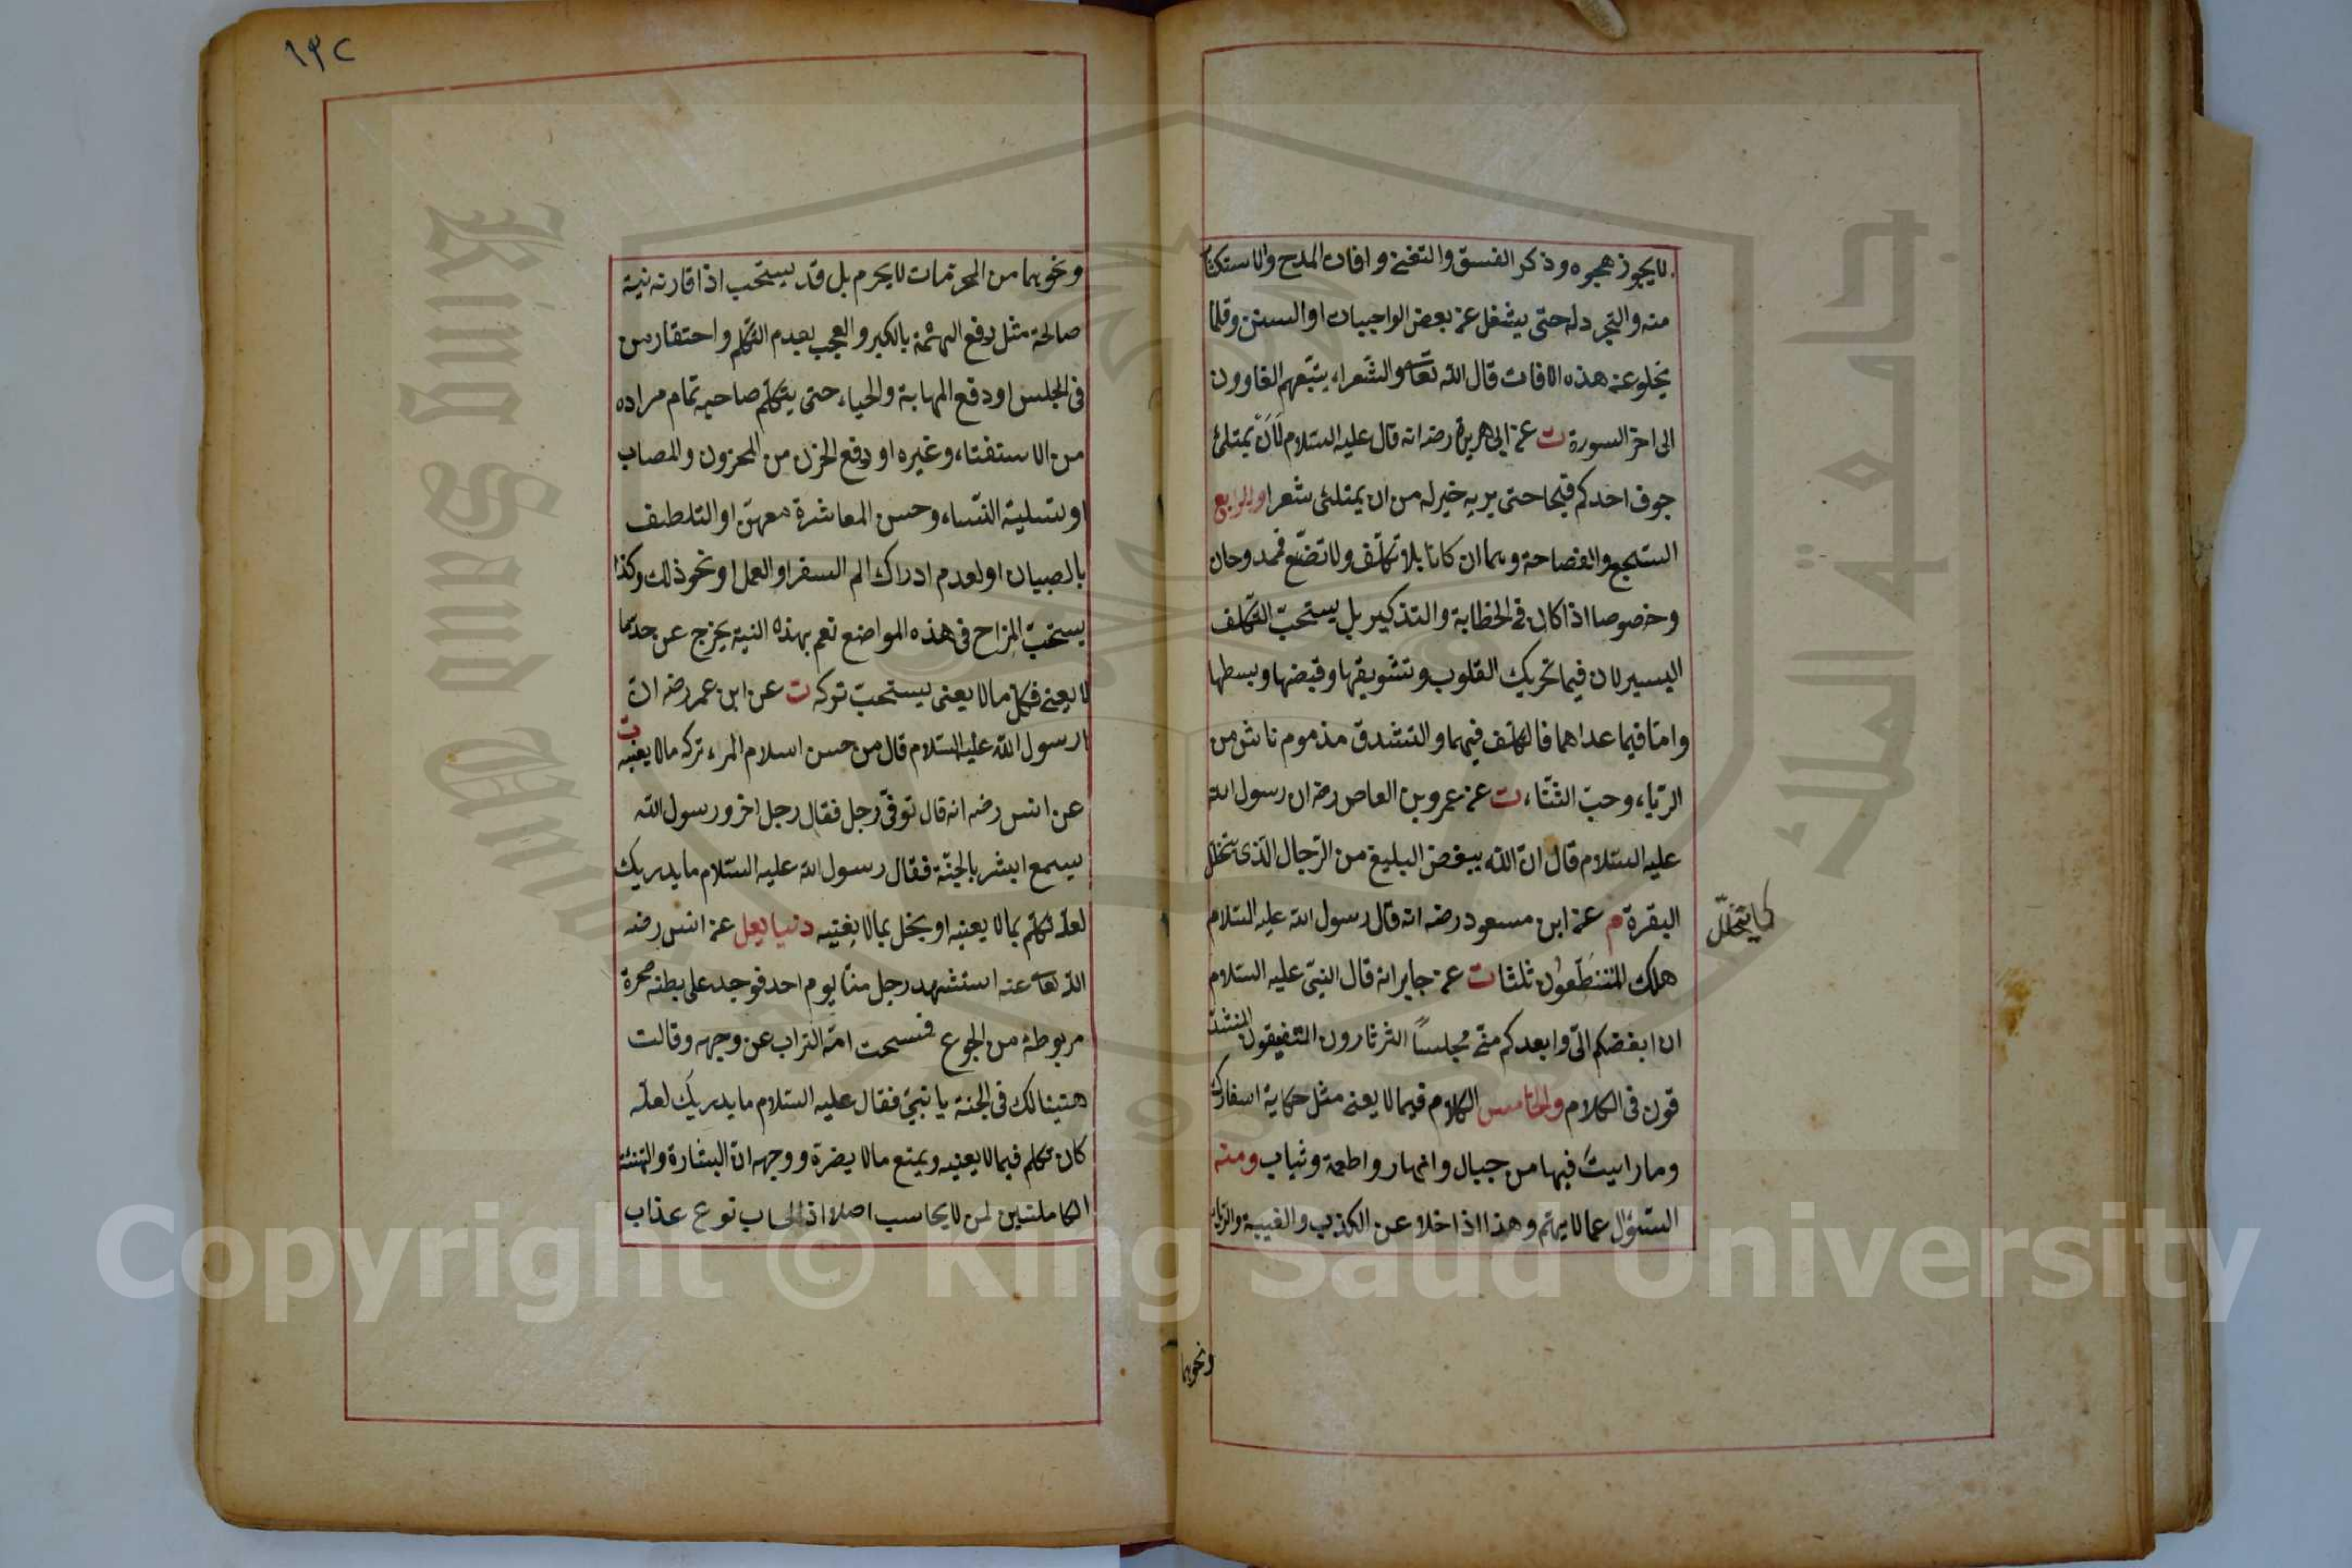 لا يجوز هجوه وذكر الفسق والتغنى وافات المدح والاستكثا
منه والتجرد له حتى يشغل عن بعض الواجبات او السنن وقلما
يخلو عن هذه الافات قال الله تعا والشعراء يتبعهم الغاوون
الى اخر السورة ت عن ابى هريرة رضه انه قال عليه السلام لَاَنْ يمتلئ
جوف احدكم قيحا حتى يريه خير له من ان يمتلئ شعرا والرابع
السجع والفصاحة وهما ان كانا بلا تكلّف ولا تصنّع فمدوحان
وخصوصا اذا كان فى الخطابة والتذكير بل يستحبّ التكلف
اليسير لان فيما تحريك القلوب وتشويقها وقبضها وبسطها
وامّا فيما عداهما فالتكلف فيهما والتشدق مذموم ناش من
الرّياء وحبّ الثّناء ت عن عمرو بن العاص رضه ان رسول الله
عليه السّلام قال انّ الله يبغض البليغ من الرّجال الّذى يتخلل
كما يتخلّل
البقرة م عن ابن مسعود رضه انه قال رسول الله عليه السّلام
هلك المتنطّعون ثلثا ت عن جابر انه قال النبىّ عليه السّلام
ان ابغضكم الىّ وابعدكم منّى مجلسًا الثرثارون المتفيقون المتشد
قون فى الكلام والخامس الكلام فيما لا يعنى مثل حكاية اسفارك
وما رايت فيها من جبال وانهار واطعمة وثياب ومنه
السّؤال عما لا يهتم وهذا اذا خلا عن الكذب والغيبة والرّياء
ونحوهما
١٣٢
ونحوهما من المحرّمات لا يحرم بل قد يستحب اذا قارنه نية
صالحة مثل دفع التهمة بالكبر والعجب بعدم التكلّم واحتقار من
فى المجلس او دفع المهابة والحياء حتى يتكلّم صاحبه تمام مراده
من الاستفتاء وغيره او دفع الحزن من المحزون والمصاب
او تسلية النّساء وحسن المعاشرة معهنّ او التلطف
بالصبيان او لعدم ادراك الم السفر او العمل او نحو ذلك وكذا
يستحبّ المزاح فى هذه المواضع نعم بهذه النية يخرج عن حدّما
لا يعنى فكلّ ما لا يعنى يستحبّ تركه ت عن ابن عمر رضه انّ
رسول الله عليه السّلام قال من حسن اسلام المرء تركه ما لا يعنيه ت
عن انس رضه انه قال توفّى رجل فقال رجل اخر ورسول الله
يسمع ابشر بالجنّة فقال رسول الله عليه السّلام ما يدريك
لعلّه تكلّم بما لا يعنيه او بخل بما لا يغنيه دنيا يعل عن انس رضه
الله تعا عنه استشهد رجل منّا يوم احد فوجد على بطنه صخرة
مربوطة من الجوع فمسحت امّه التراب عن وجهه وقالت
هنيئا لك فى الجنة يا نبىّ فقال عليه السّلام ما يدريك لعلّه
كان تكلم فيما لا يعنيه ويمنع ما لا يضرّه ووجهه انّ البشارة والتهنئة
الكاملتين لمن لا يحاسب اصلا اذ الحساب نوع عذاب